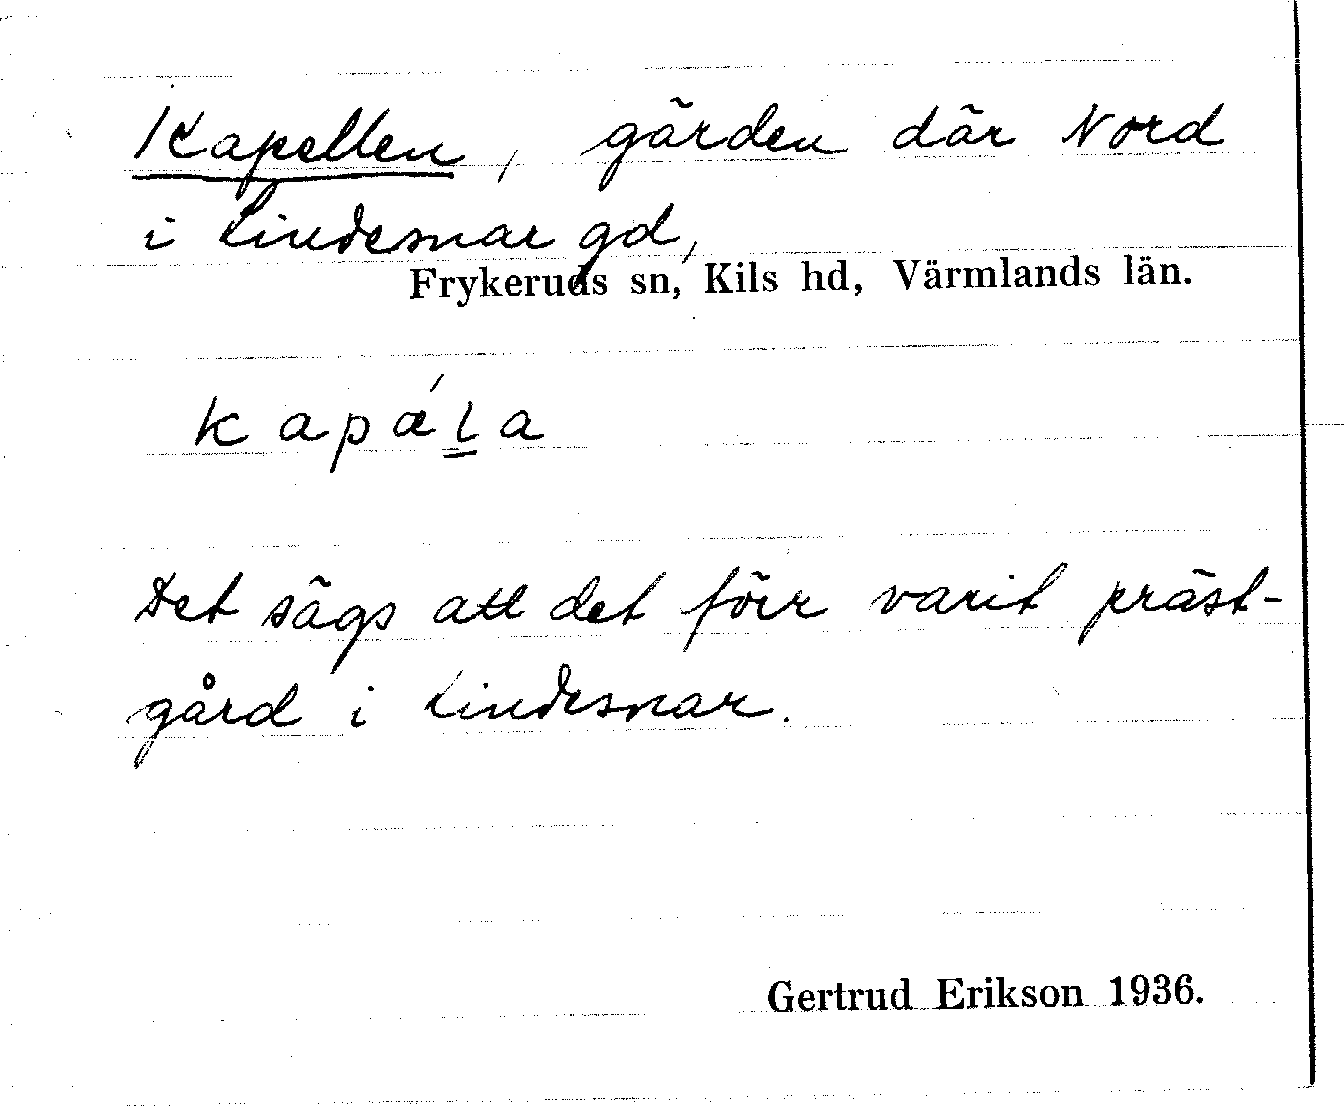 Kapellen, gärden där Nord
i Lindesnar gd,
Frykeruds sn, Kils hd, Värmlands län.
kapǽla
Det sägs att det förr varit präst-
gård i Lindesnar.
Gertrud Erikson 1936.